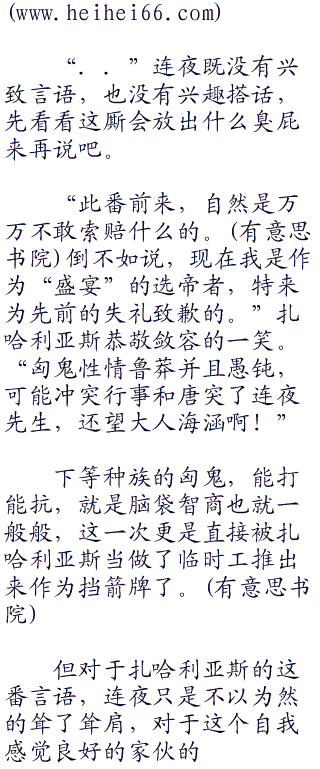 (www.heihei66.com)
“．．”连夜既没有兴
致言语，也没有兴趣搭话，
先看看这厮会放出什么臭屁
来再说吧。
“此番前来，自然是万
万不敢索赔什么的。(有意思
书院)倒不如说，现在我是作
为“盛宴”的选帝者，特来
为先前的失礼致歉的。”扎
哈利亚斯恭敬敛容的一笑。
“匈鬼性情鲁莽并且愚钝，
可能冲突行事和唐突了连夜
先生，还望大人海涵啊！”
下等种族的匈鬼，能打
能抗，就是脑袋智商也就一
般般，这一次更是直接被扎
哈利亚斯当做了临时工推出
来作为挡箭牌了。(有意思书
院)
但对于扎哈利亚斯的这
番言语，连夜只是不以为然
的耸了耸肩，对于这个自我
感觉良好的家伙的